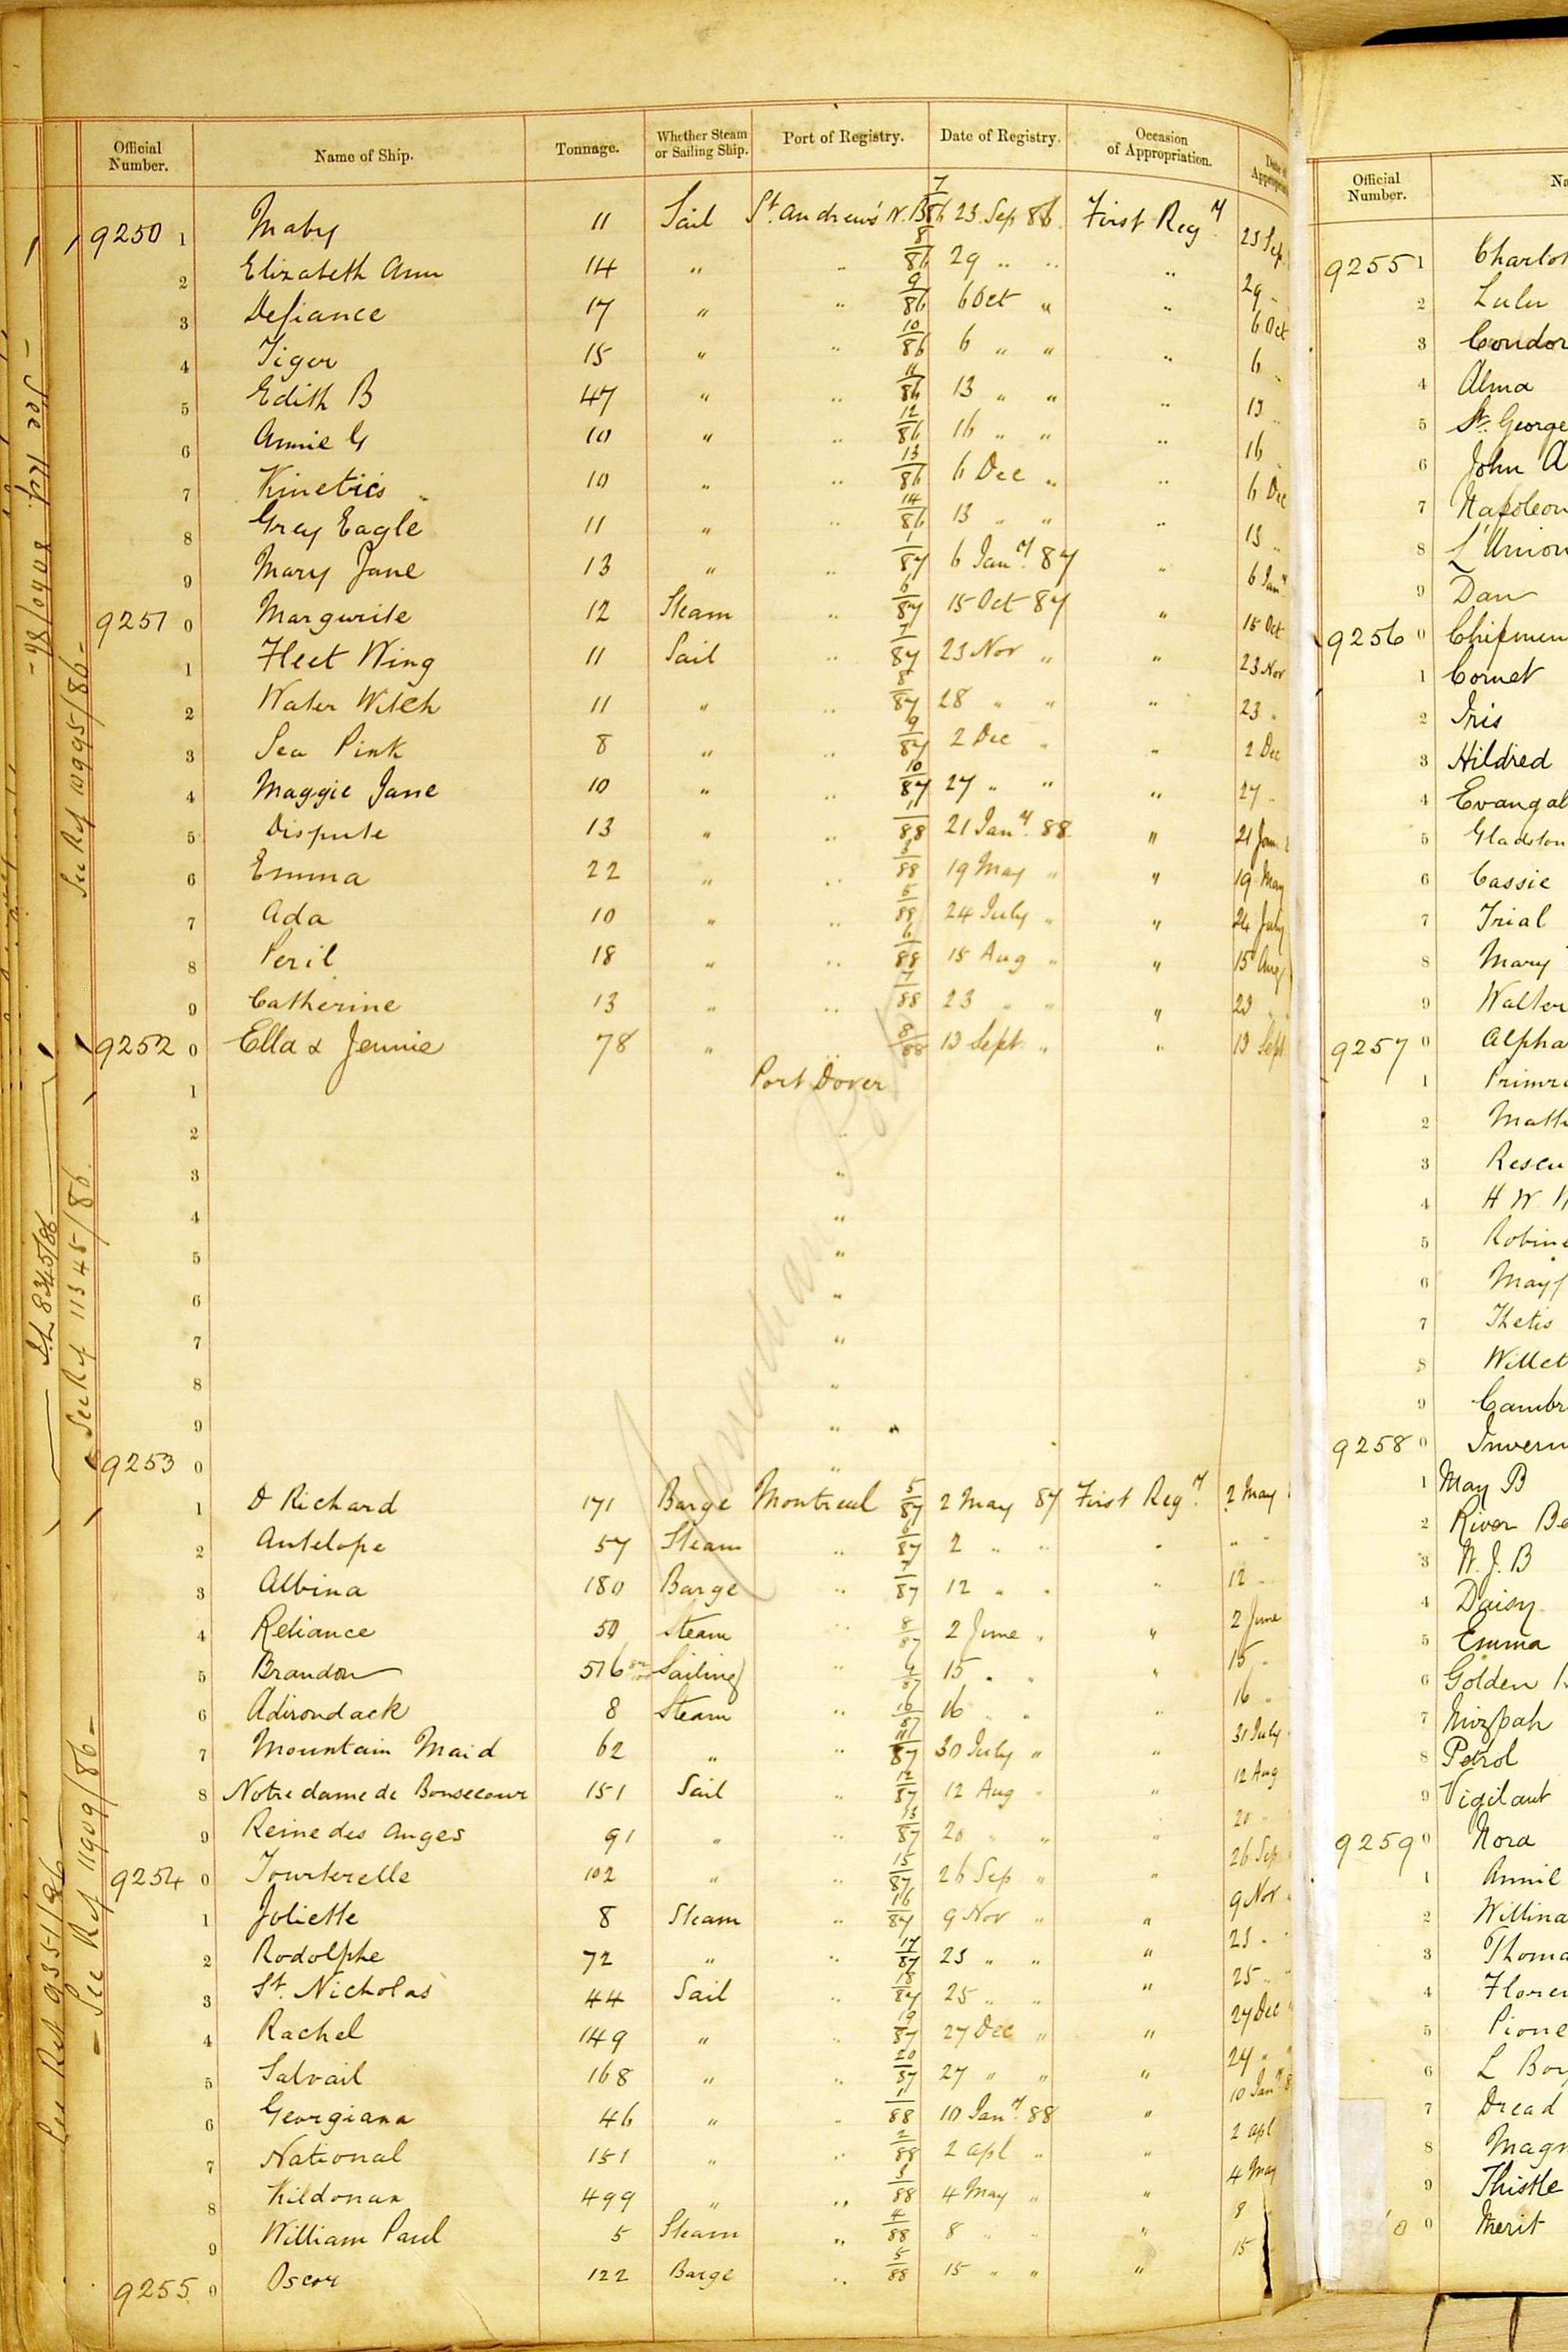 Official Number. Name of Ship. Tonnage. Whether Steam or Sailing Ship. Port of Registry. Date of Registry. Occasion of Appropriation.
9250 1 Maby 11 Sail St. Andrew's N.B 7/86 23 Sep 86 First Regy. 23 Sep
2 Elizabeth Ann 14 " " 8/86 29 " " " 29 "
3 Defiance 17 " " 9/86 6 Oct " " 6 Oct
4 Tiger 15 " " 10/86 6 " " " 6 "
5 Edith B 47 " " 11/86 13 " " " 13 "
6 Annie G 10 " " 12/86 16 " " " 16
7 Kinetics 10 " " 13/86 6 Dec " " 6 Dec
8 Grey Eagle 11 " " 14/86 13 " " " 13 "
9 Mary Jane 13 " " 1/87 6 Jany. 87 " 6 Jany
9251 0 Margurite 12 Steam 6/87 15 Oct 87 " 15 Oct
1 Fleet Wing 11 Sail " 7/87 23 Nov " " 23 Nov
2 Water Witch 11 " " 8/87 28 " " " 23 "
3 Sea Pink 8 " " 9/87 2 Dec " " 2 Dec
4 Maggie Jane 10 " " 10/87 27 " " " 27 "
5 Dispute 13 " " 1/88 21 Jany. 88 " 21 Jan
6 Emma 22 " " 3/88 19 May " " 19 May
7 Ada 10 " " 5/88 24 July " " 24 July
8 Peril 18 " " 6/88 15 Aug " " 15 Aug
9 Catherine 13 " " 7/88 23 " " " 23 "
9252 0 Ella & Jennie 78 " " 8/88 13 Sept " " 13 Sept
1 Port Dover
2 "
3 "
4 "
5 "
6 "
7 "
8 "
9 " "
9253 0 "
1 D Richard 171 Barge Montreal 5/87 2 May 87 First Regy. 2 May
2 Antelope 57 Steam " 6/87 2 " " " " "
3 Albina 180 Barge " 7/87 12 " " " 12 "
4 Reliance 50 Steam " 8/87 2 June " " 2 June
5 Brandon 516 Sailing " 9/87 15 " " " 15 "
6 Adirondack 8 Steam " 10/87 16 " " " 16 "
7 Mountain Maid 62 " " 11/87 30 July " " 30 July
8 Notre dame de Bonsecour 151 Sail " 12/87 12 Aug " " 12 Aug
9 Reine des Anges 91 " " 13/87 20 " " " 20 "
9254 0 Tourterelle 102 " " 15/87 26 Sep " " 26 Sep
1 Joliette 8 Steam " 16/87 9 Nov " " 9 Nov
2 Rodolphe 72 " " 17/87 23 " " " 23 "
3 St. Nicholas 44 Sail " 18/87 25 " " " 25 "
4 Rachel 149 " " 19/87 27 Dec " " 27 Dec
5 Salvail 168 " " 20/87 27 " " " 27 "
6 Georgiana 46 " " 1/88 10 Jany. 88 " 10 Jany
7 National 151 " " 2/88 2 apl " " 2 apl
8 Kildonan 499 " " 3/88 4 May " " 4 May
9 William Paul 5 Steam " 4/88 8 " " " 8
9255 0 Oscar 122 Barge " 5/88 15 " " " 15
See Ref 10995/86
S.L. 8345/86
See Ref 11345/86
See Ref 9351/86
See Ref 11909/86
Canadian
Official Number.
9255 1
2 Lulu
3 Condor
4 Alma
5 St. George
6 John A
7 Napoleon
8 L'Union
9 Dan
9256 0
1 Comet
2 Iris
3 Hildred
4
5
6 Cassie
7 Trial
8 Mary
9 Walter
9257 0 Alpha
1
2
3
4 H W
5
6
7 Thetis
8
9
9258 0
1 May B
2 River
3 W. J. B
4 Daisy
5 Emma
6 Golden
7 Mizpah
8 Petrol
9 Vigilant
9259 0 Nora
1 Annie
2
3
4
5
6 L
7 Dread
8
9 Thistle
0 Merit